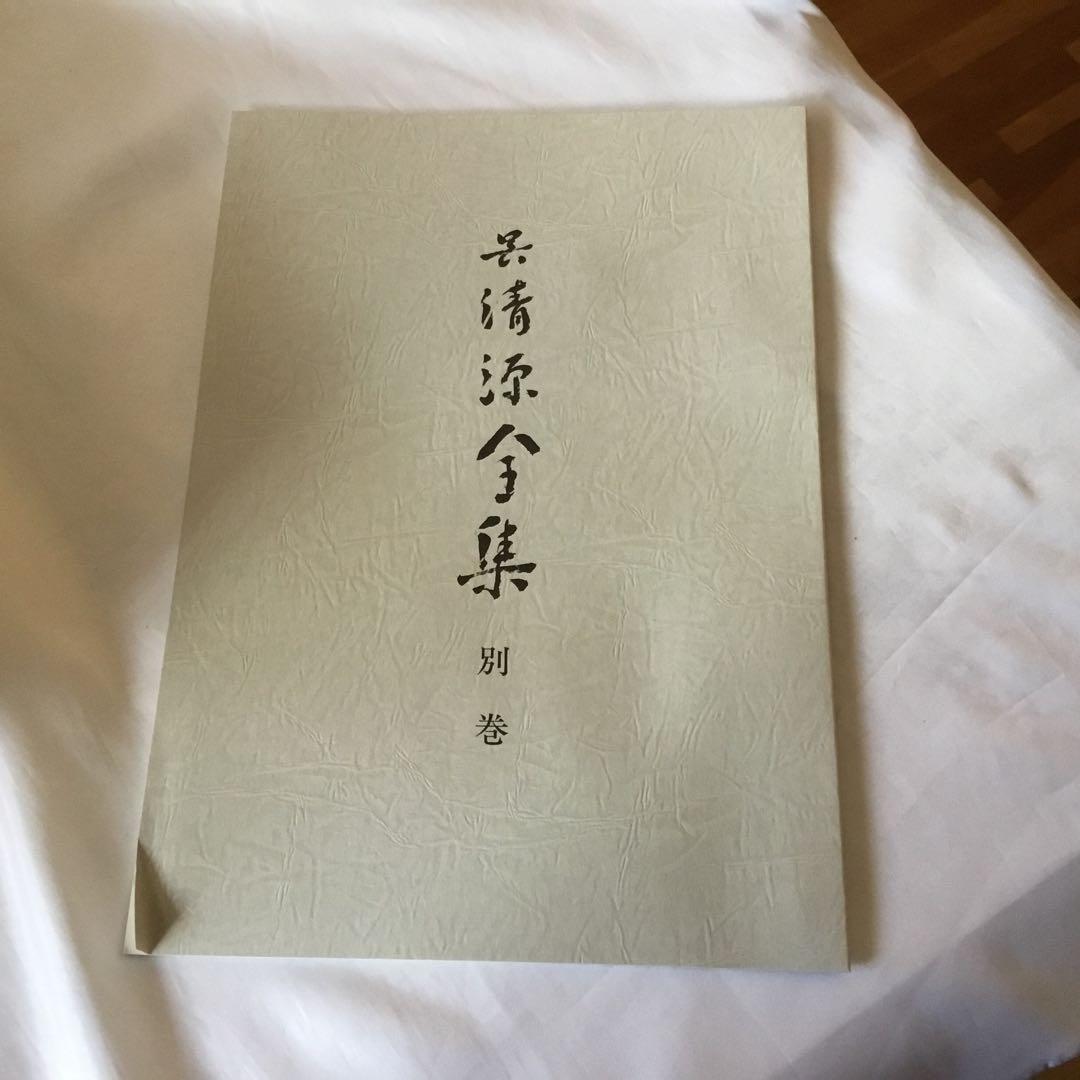 呉清源全集
別巻